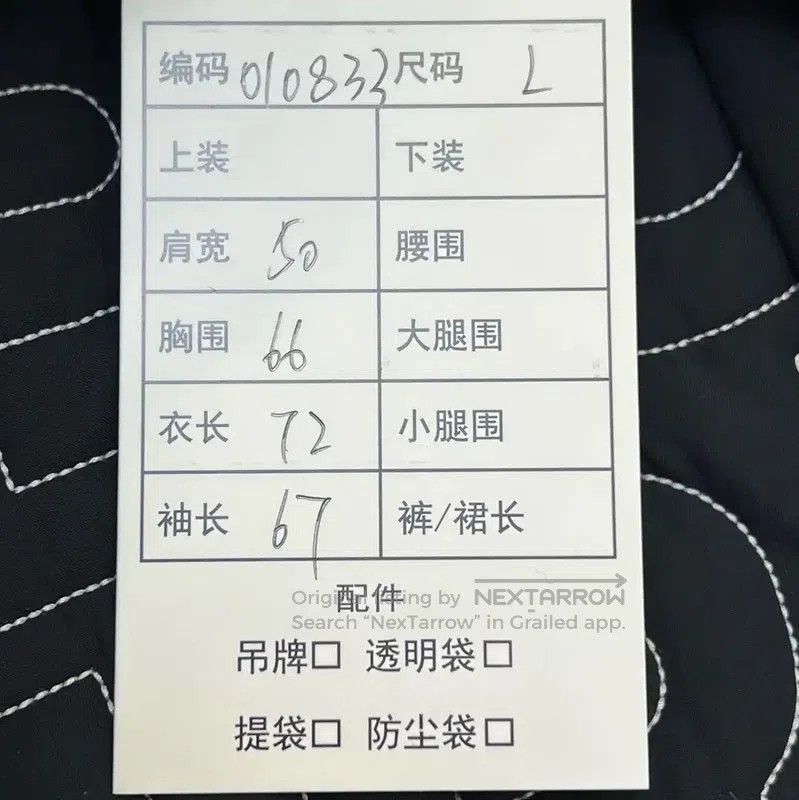 编码 010833 尺码 L
上装 下装
肩宽 50 腰围
胸围 66 大腿围
衣长 72 小腿围
袖长 67 裤/裙长
配件
Original listing by NEXTARROW
Search “NexTarrow” in Grailed app.
吊牌□ 透明袋□
提袋□ 防尘袋□